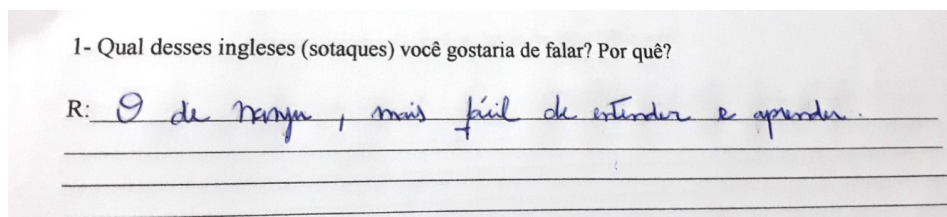 1- Qual desses ingleses (sotaques) você gostaria de falar? Por quê?
R: O de , mais fácil de entender e aprender.